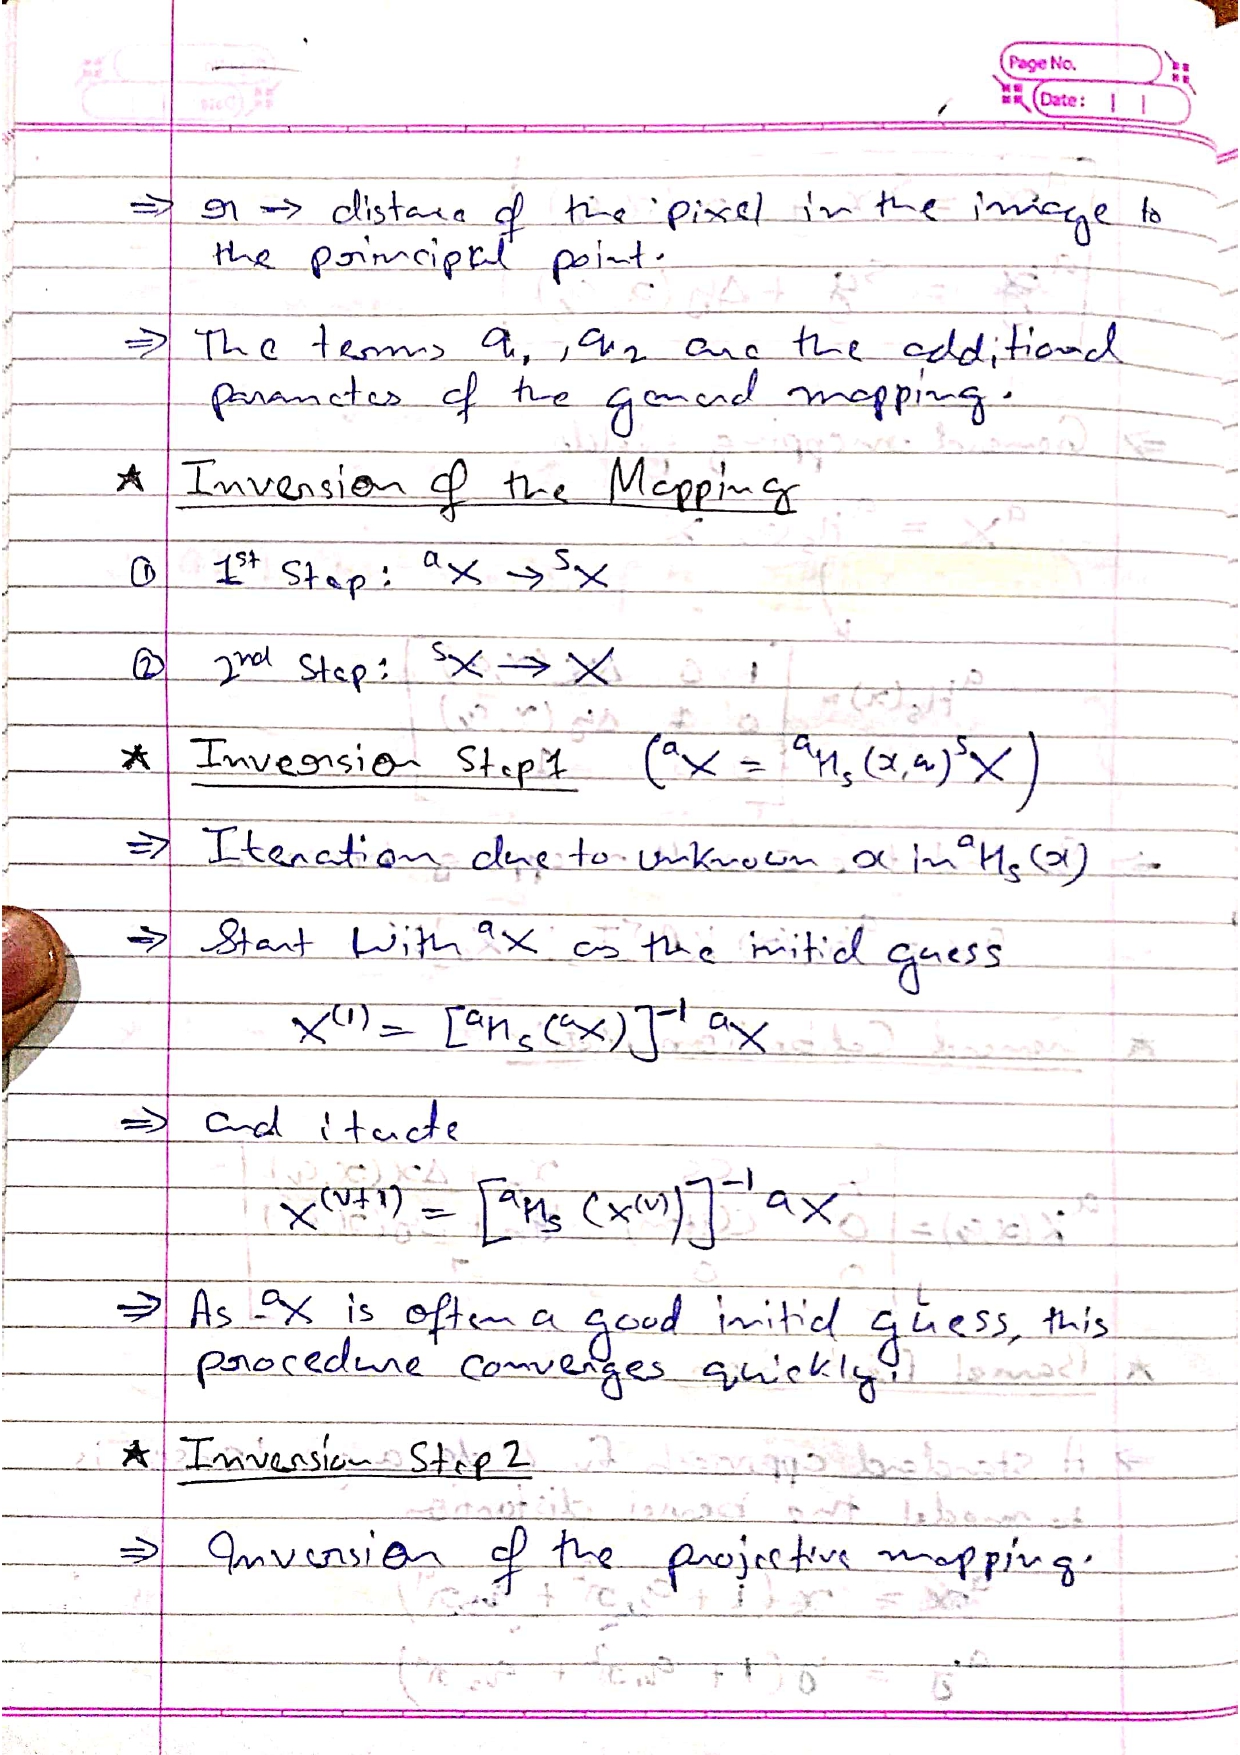 Page No.
Date:
⇒ r → distance of the pixel in the image to
the principal point.
⇒ The terms q₁, q₂ are the additional
parameters of the general mapping.
★ Inversion of the Mapping
① 1st Step: ᵃX → ˢX
② 2nd Step: ˢX → X
★ Inversion Step 1 (ᵃX = ᵃHₛ(x,q) ˢX)
⇒ Iteration due to unknown x in ᵃHₛ(x)
⇒ Start with ᵃX as the initial guess
X⁽¹⁾ = [ᵃHₛ(ᵃX)]⁻¹ ᵃX
⇒ and iterate
X⁽ᵛ⁺¹⁾ = [ᵃHₛ(X⁽ᵛ⁾)]⁻¹ ᵃX
⇒ As ᵃX is often a good initial guess, this
procedure converges quickly.
★ Inversion Step 2
⇒ Inversion of the projective mapping.